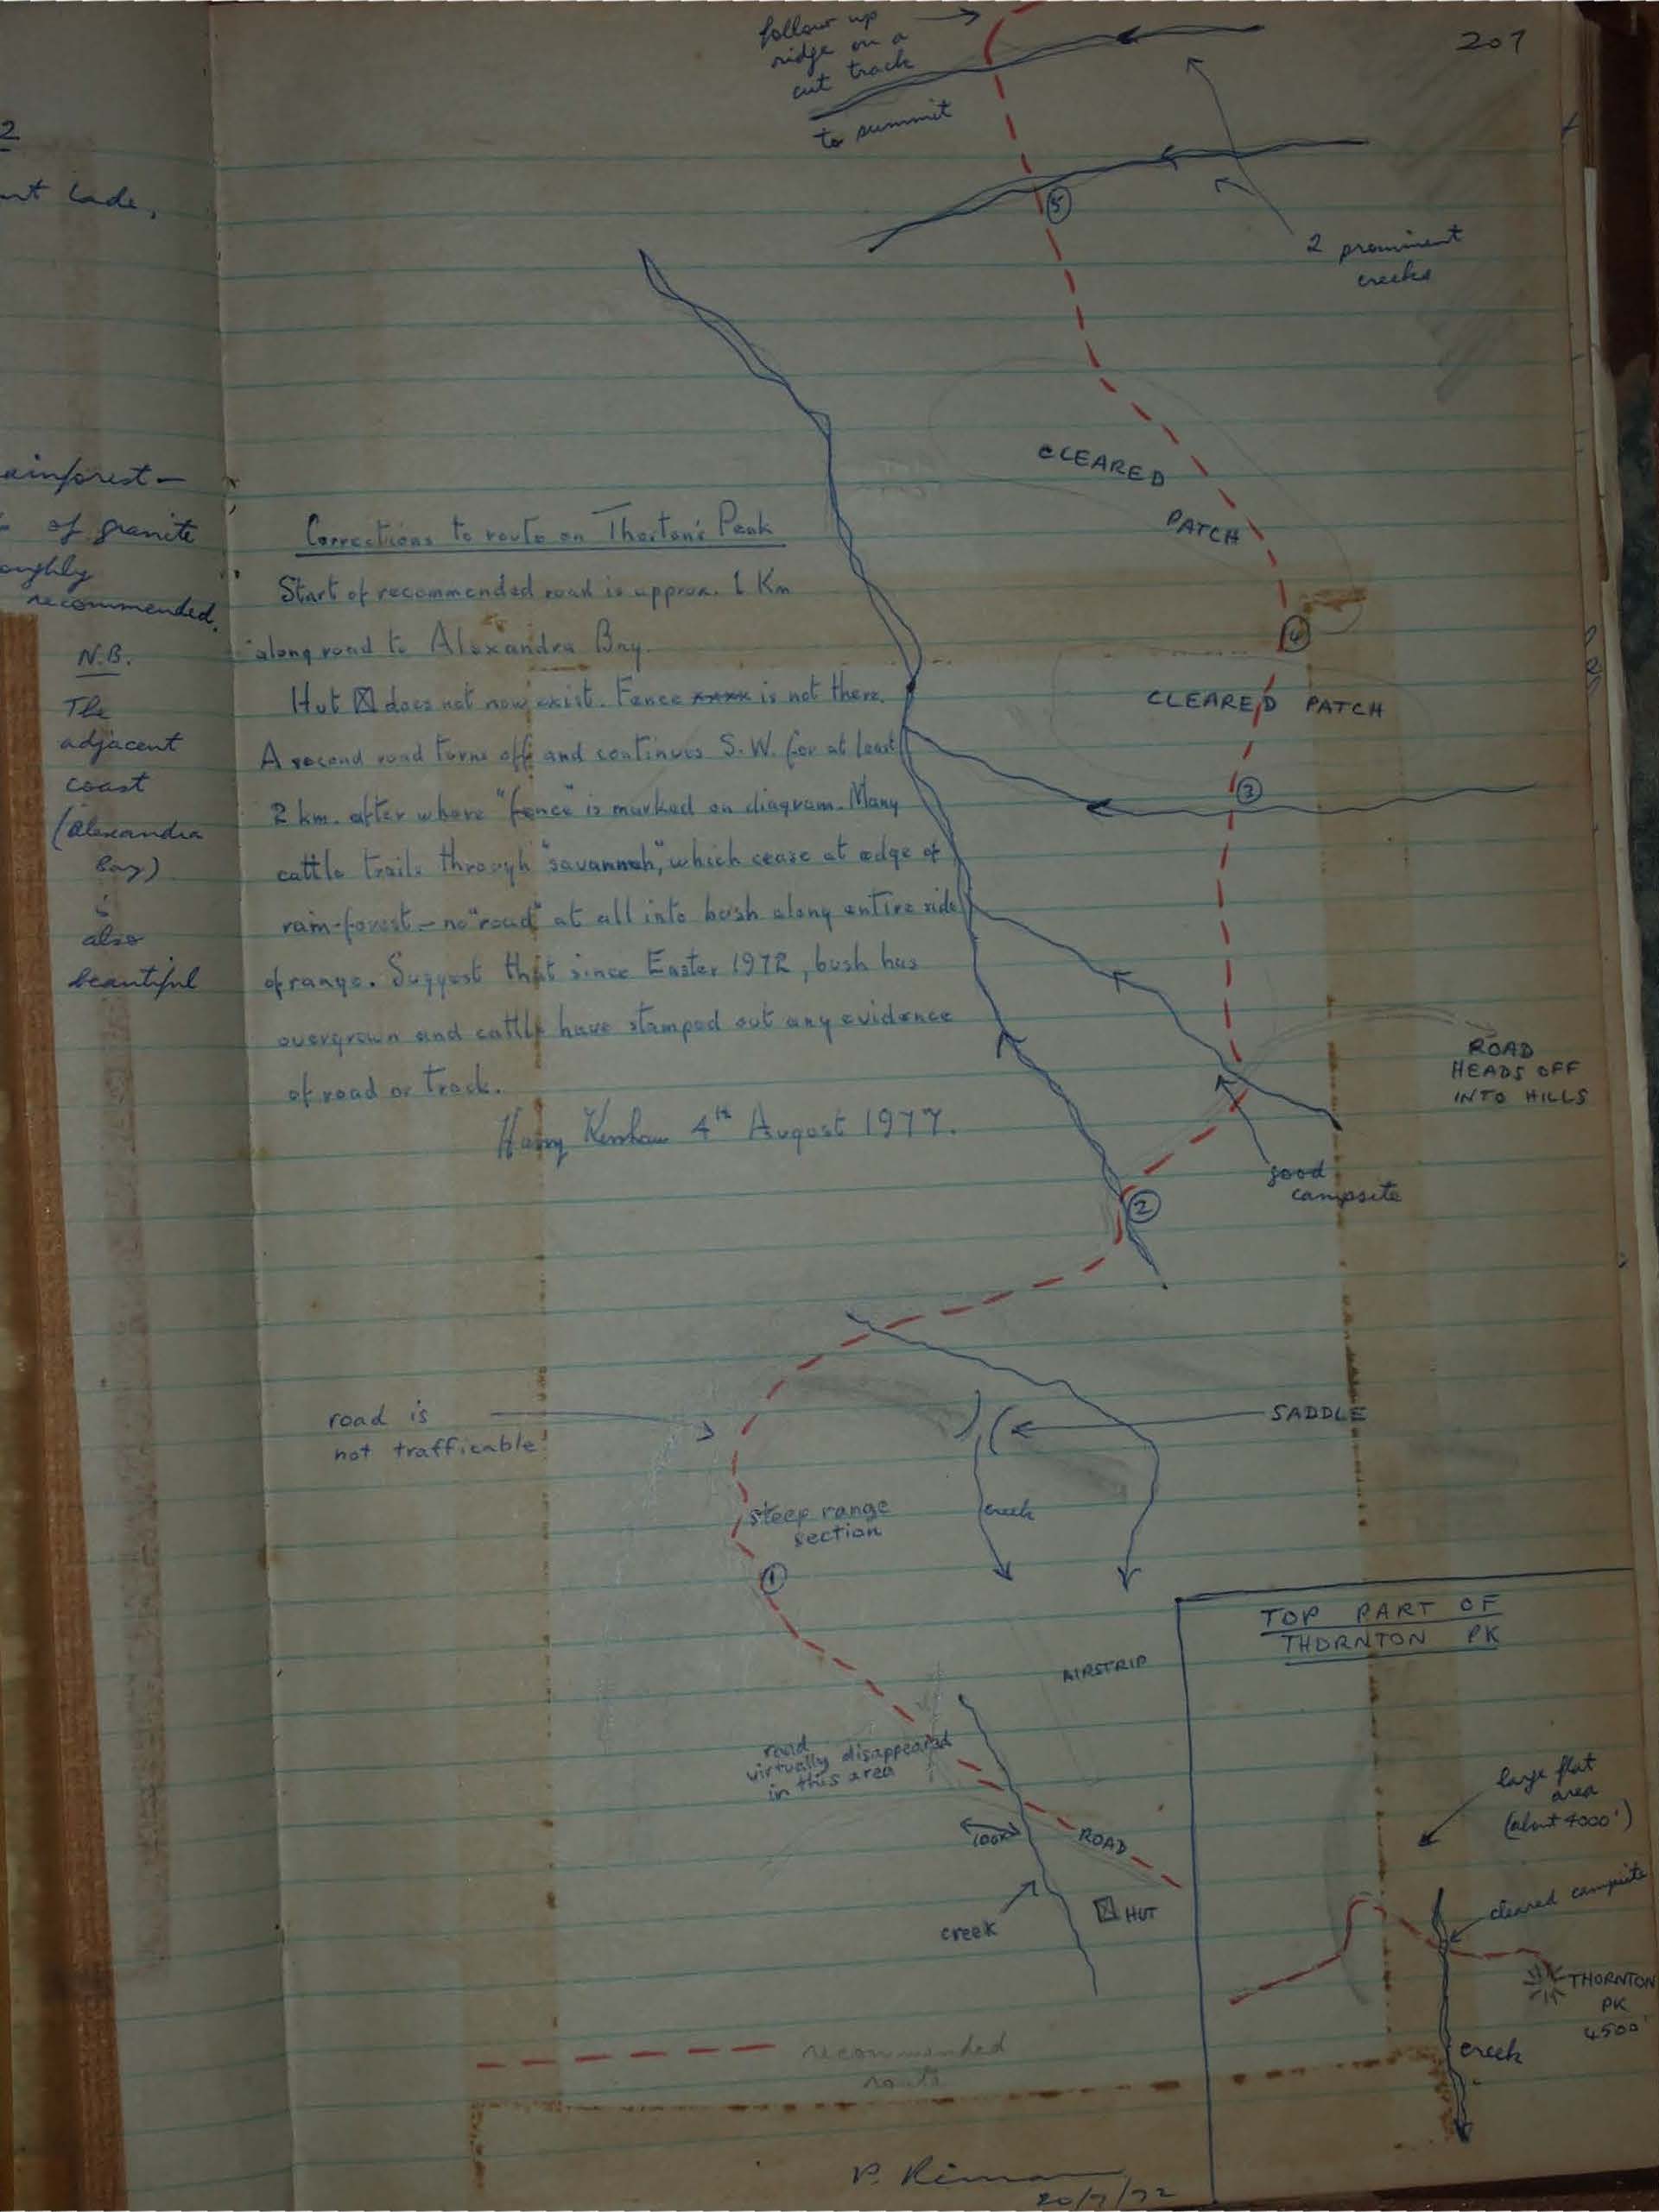 207
follow up
ridge on a
cut track
to summit
5
2 prominent
creeks
CLEARED
PATCH
4
CLEARED PATCH
3
2
nt lade,
ainforest—
of granite
oughly
recommended.
N.B.
The
adjacent
coast
(Alexandra
Bay)
is
also
beautiful
Corrections to route on Thorton's Peak
Start of recommended road is approx. 1 Km
along road to Alexandra Bay.
Hut ☒ does not now exist. Fence xxxx is not there.
A second road turns off and continues S.W. for at least
2 km. after where "fence" is marked on diagram. Many
cattle trails through "savannah", which cease at edge of
rain-forest – no "road" at all into bush along entire side
of range. Suggest that since Easter 1972, bush has
overgrown and cattle have stamped out any evidence
of road or track.
Harry Kershaw 4th August 1977.
ROAD
HEADS OFF
INTO HILLS
good
campsite
2
road is
not trafficable
SADDLE
steep range
section
creek
1
AIRSTRIP
road
virtually disappeared
in this area
ROAD
creek
HUT
recommended
route
TOP PART OF
THORNTON PK
large flat
area
(about 4000')
cleared campsite
THORNTON
PK
4500'
creek
20/7/72